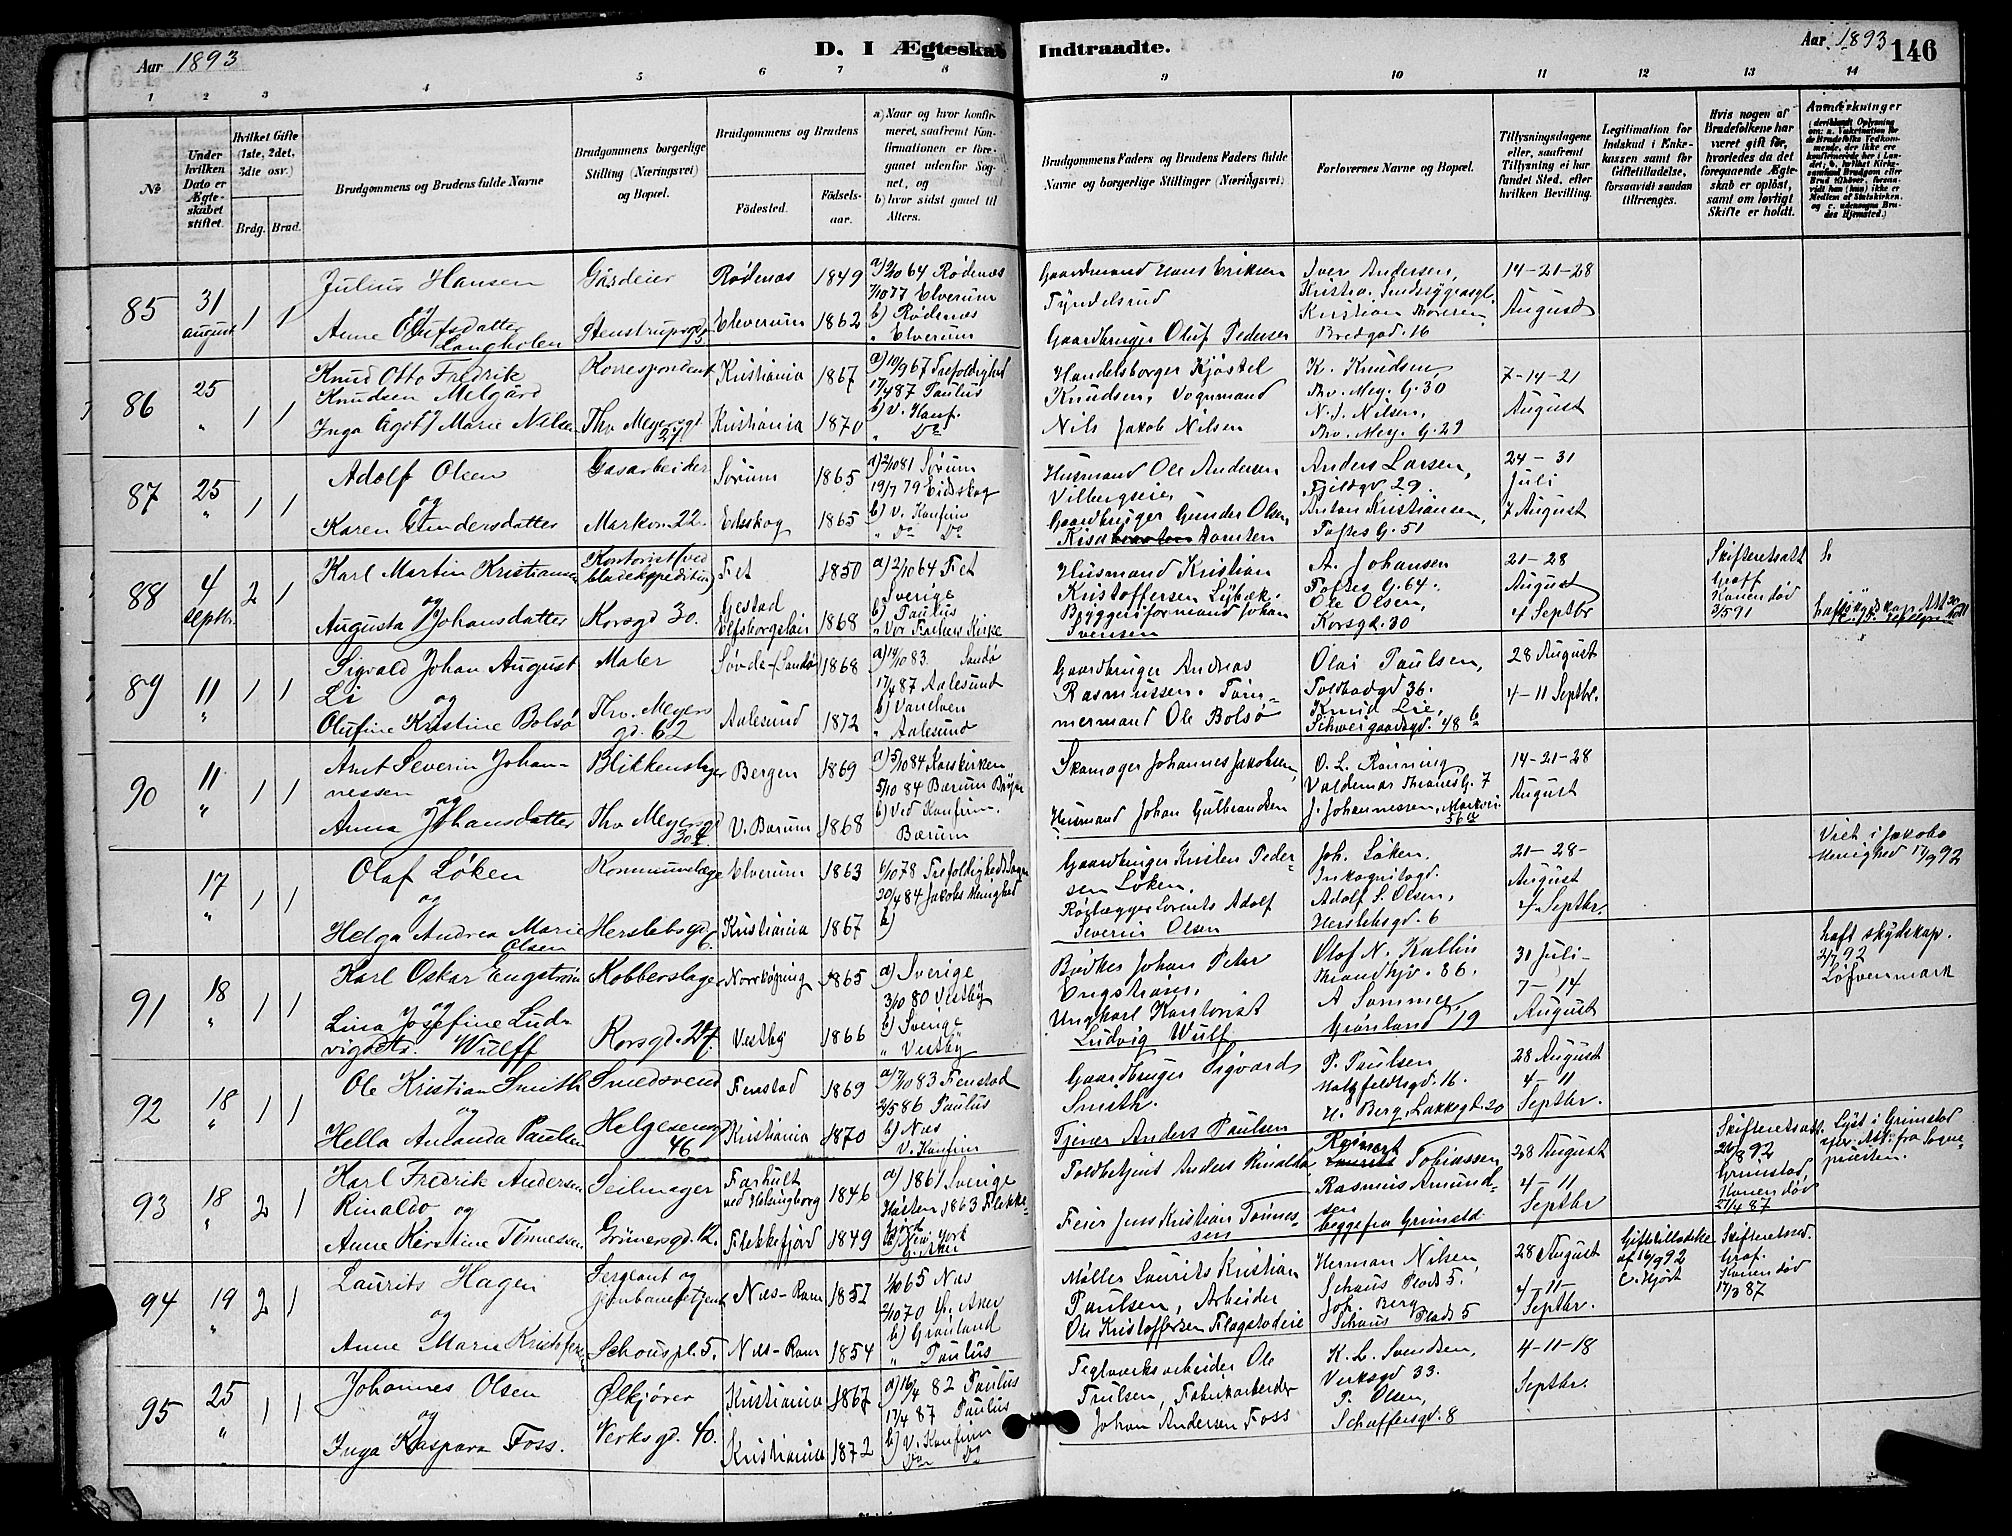 Aar 1893
D. I Ægteskab Indtraadte.
Aar 1893
146
1 2 3 4 5 6 7 8 9 10 11 12 13 14
No
Under hvilken Dato er Ægteskabet stiftet.
Hvilket Gifte (1ste, 2det, 3die osv.)
Brdg. Brud.
Brudgommens og Brudens fulde Navne
Brudgommens borgerlige Stilling (Næringsvei) og Bopæl.
Brudgommens og Brudens
Fødested.
Fødselsaar.
a) Naar og hvor konfirmeret, saafremt Konfirmationen er foregaaet udenfor Sognet, og
b) hvor sidst gaaet til Alters.
Brudgommens Faders og Brudens Faders fulde Navne og borgerlige Stillinger (Næringsvei.)
Forlovernes Navne og Bopæl.
Tillysningsdagene eller, saafremt Tillysning ei har fundet Sted, efter hvilken Bevilling.
Legitimation for Indskud i Enkekassen samt for Giftetilladelse, forsaavidt saadan tiltrænges.
Hvis nogen af Brudefolkene har været gift før, hvorledes da det foregaaende Ægteskab er opløst, samt om lovligt Skifte er holdt.
Anmærkninger
85
31 august
1 1
Julius Hansen
og
Anne Olufsdatter Langholen
Gårdeier
Stenstrupsgd 5
Rødenæs 1849
Elverum 1862
a) 2/10 64 Rødenæs
7/10 77 Elverum
b) Rødenæs
" Elverum
Gaardmand Hans Eriksen
Tyndelsrud
Gaardbruger Oluf Pedersen
Iver Andersen,
Kristia. Sindssygeasyl.
Kristian Thoresen
Bredgad. 16
14-21-28
August
86
25 "
1 1
Knud Otto Fredrik
Knudsen Melgård
Inga Agot Marie Nilsen
Korrespondent
Thv Meyersgt 29
Kristiania 1867
Kristiania 1870
17/4 87 Paulus
b) v. Konf.
" Do
Handelsborger Kjøstel
Knudsen, Vognmand
Nils Jakob Nilsen
K. Knudsen,
Thv. Mey. G. 30
N. J. Nilsen,
Thv. Mey. G. 29
7-14-21
August
87
25 "
1 1
Adolf Olsen
og
Karen Gundersdatter
Gasarbeider
Markvn 22.
Sørum 1865
Edskog 1865
a) 2/10 81 Sørum
19/7 79 Eidskog
b) v. Konfirm
" Do Do
Husmand Ole Andersen
Vilbergseie,
Gaardbruger Gunder Olsen,
Anders Larsen,
Fjeldgd 29.
Anton Kristiansen,
Toftes G. 51
24-31
Juli
7 August
88
4 Septbr.
2 1
Karl Martin Kristiansen
og
Augusta Johansdatter
Kontorist (ved bladexpedition)
Korsgd 30.
Fet 1850
Gestad
Elfsborgslän 1868
a) 2/10 64 Fet
Sverige
b) Paulus
" Vor Frelsers Kirke
Husmand Kristian
Kristoffersen
Byggeriformand Johan
Svensen
A. Johansen
Toftes G. 64.
Ole Olsen,
Korsgd. 30
21-28
August
4 Septbr
Skifteretsatt
Graff
Konen død
3/5 91
89
11 "
1 1
Sigvald Johan August
Li og
Olufine Kristine Bolsø
Maler
Thv. Meyers gd. 62
Søvde-(Sandø) 1868
Aalesund 1872
a) 14/10 83. Sandø
17/4 87 Aalesund
b) Vanelven
" Aalesund
Gaardbruger Andreas
Rasmussen. Tømmermand Ole Bolsø
Olai Paulsen,
Toldbodgd 36.
Knud Lie,
Schweigaardsgd. 48 b
28 August
4-11 Septbr.
90
11 "
1 1
Arnt Severin Johannessen
og
Anna Johansdatter
Blikkenslager
Thv Meyersgd 30
Bergen 1869
V. Bærum 1868
a) 5/10 84 Korskirken
5/10 84 Bærum
b) Ved Konfirm.
Bærum
Skomager Johannes Jakobsen,
Husmand Johan Gulbrandsen
O. L. Rønning
Valdemar Thranes G. 7
J. Johannessen, Markvei 56 a
14-21-28
August
17 "
1 1
Olaf Løken
og
Helga Andrea Marie Olsen
Kommunelæge
Herslebsgd 6.
Elverum 1863
Kristiania 1867
6/10 78 Trefoldigheds Sogn
20/4 84 Jakobs Menighed
b)
Gaardbruger Kristen Pedersen Løken.
Rørlægger Lorents Adolf
Severin Olsen
Joh. Løken.
Inkognitogd.
Adolf S. Olsen,
Herslebsgd. 6
21-28-
August
4 Septbr.
Viet i Jakobs
Menighed 17/9 92
91
18 "
1 1
Karl Oskar Engström
og
Lina Josefine Ludvigsdtr. Wulff
Kobberslager
Korsgd. 27.
Norrkøping 1865
Vestby 1866
a) Sverige
3/10 80 Vestby
b) Sverige
" Vestby
Bødker Johan Peter
Engstrøm.
Ungkarl Kontorist
Ludvig Wulf
Olof N. Kallin
Throndhjv. 86.
A Sommer
Grønland 19
31 Juli-
7-14
August
haft skydskap.
2/7 92
Löfvenmark
92
18 "
1 1
Ole Kristian Smith
og
Hella Amanda Paulsen
Smedsvend
Helgesensgd 46
Fenstad 1869
Kristiania 1870
a) 7/10 83 Fenstad
2/5 86 Paulus
b) Næs
V. Konfirm
Gaardbruger Sigvards
Smith.
Tjener Anders Paulsen
P. Paulsen
Motzfeldtsgd. 16.
H. Berg, Lakkegd. 20
28 August
4-11
Septbr.
93
18 "
2 1
Karl Fredrik Andersen
Rinaldo og
Anne Kirstine Tønnessen
Seilmager
Grünersgd. 12.
Farhult
ved Helsingborg 1846
Flekkefjord 1849
a) 1861 Sverige
Høsten 1863 Flekkefjord
b) New York
Toldbetjent Anders Rinaldo
Feier Jens Kristian Tønnessen
Reinert Tobiassen
Rasmus Amundsen
begge fra Grimstd
28 August
4-11
Septbr
Skifteretsatt.
Grimstad
Konen død
21/4 87
Lyst i Grimstad
efter Att. fra Sognepræsten.
94
19 "
2 1
Laurits Hagen
og
Anne Marie Kristoffersen
Sergeant og jernbanebetjent
Schouspl. 5.
Næs-Rom 1851
Næs-Rom 1854
1/10 65 Næs
2/10 70
b) Grønland
" Paulus
Møller Laurits Kristian
Paulsen, Arbeider
Ole Kristoffersen Flagstadeie
Herman Nilsen,
Schous Plads 5.
Joh. Berg
Schous Plads 5
28 August
4-11-
Septbr.
Giftetilladelse
af 16/9 92
C. Hjort
Skifteretsad.
Graf.
Konen død
17/3 87
95
25 "
1 1
Johannes Olsen
og
Inga Kaspara Foss.
Ølkjører
Verksgd. 40.
Kristiania 1867
Kristiania 1872
a) 16/4 82 Paulus
17/4 87 Paulus
b) V. Konfirm
Do Do
Teglverksarbeider Ole
Trulsen, Fabrikarbeider
Johan Andersen Foss
K. L. Svendsen,
Verksgd 33.
P. Olsen,
Schæffersgd. 8
4-11-18
Septbr.